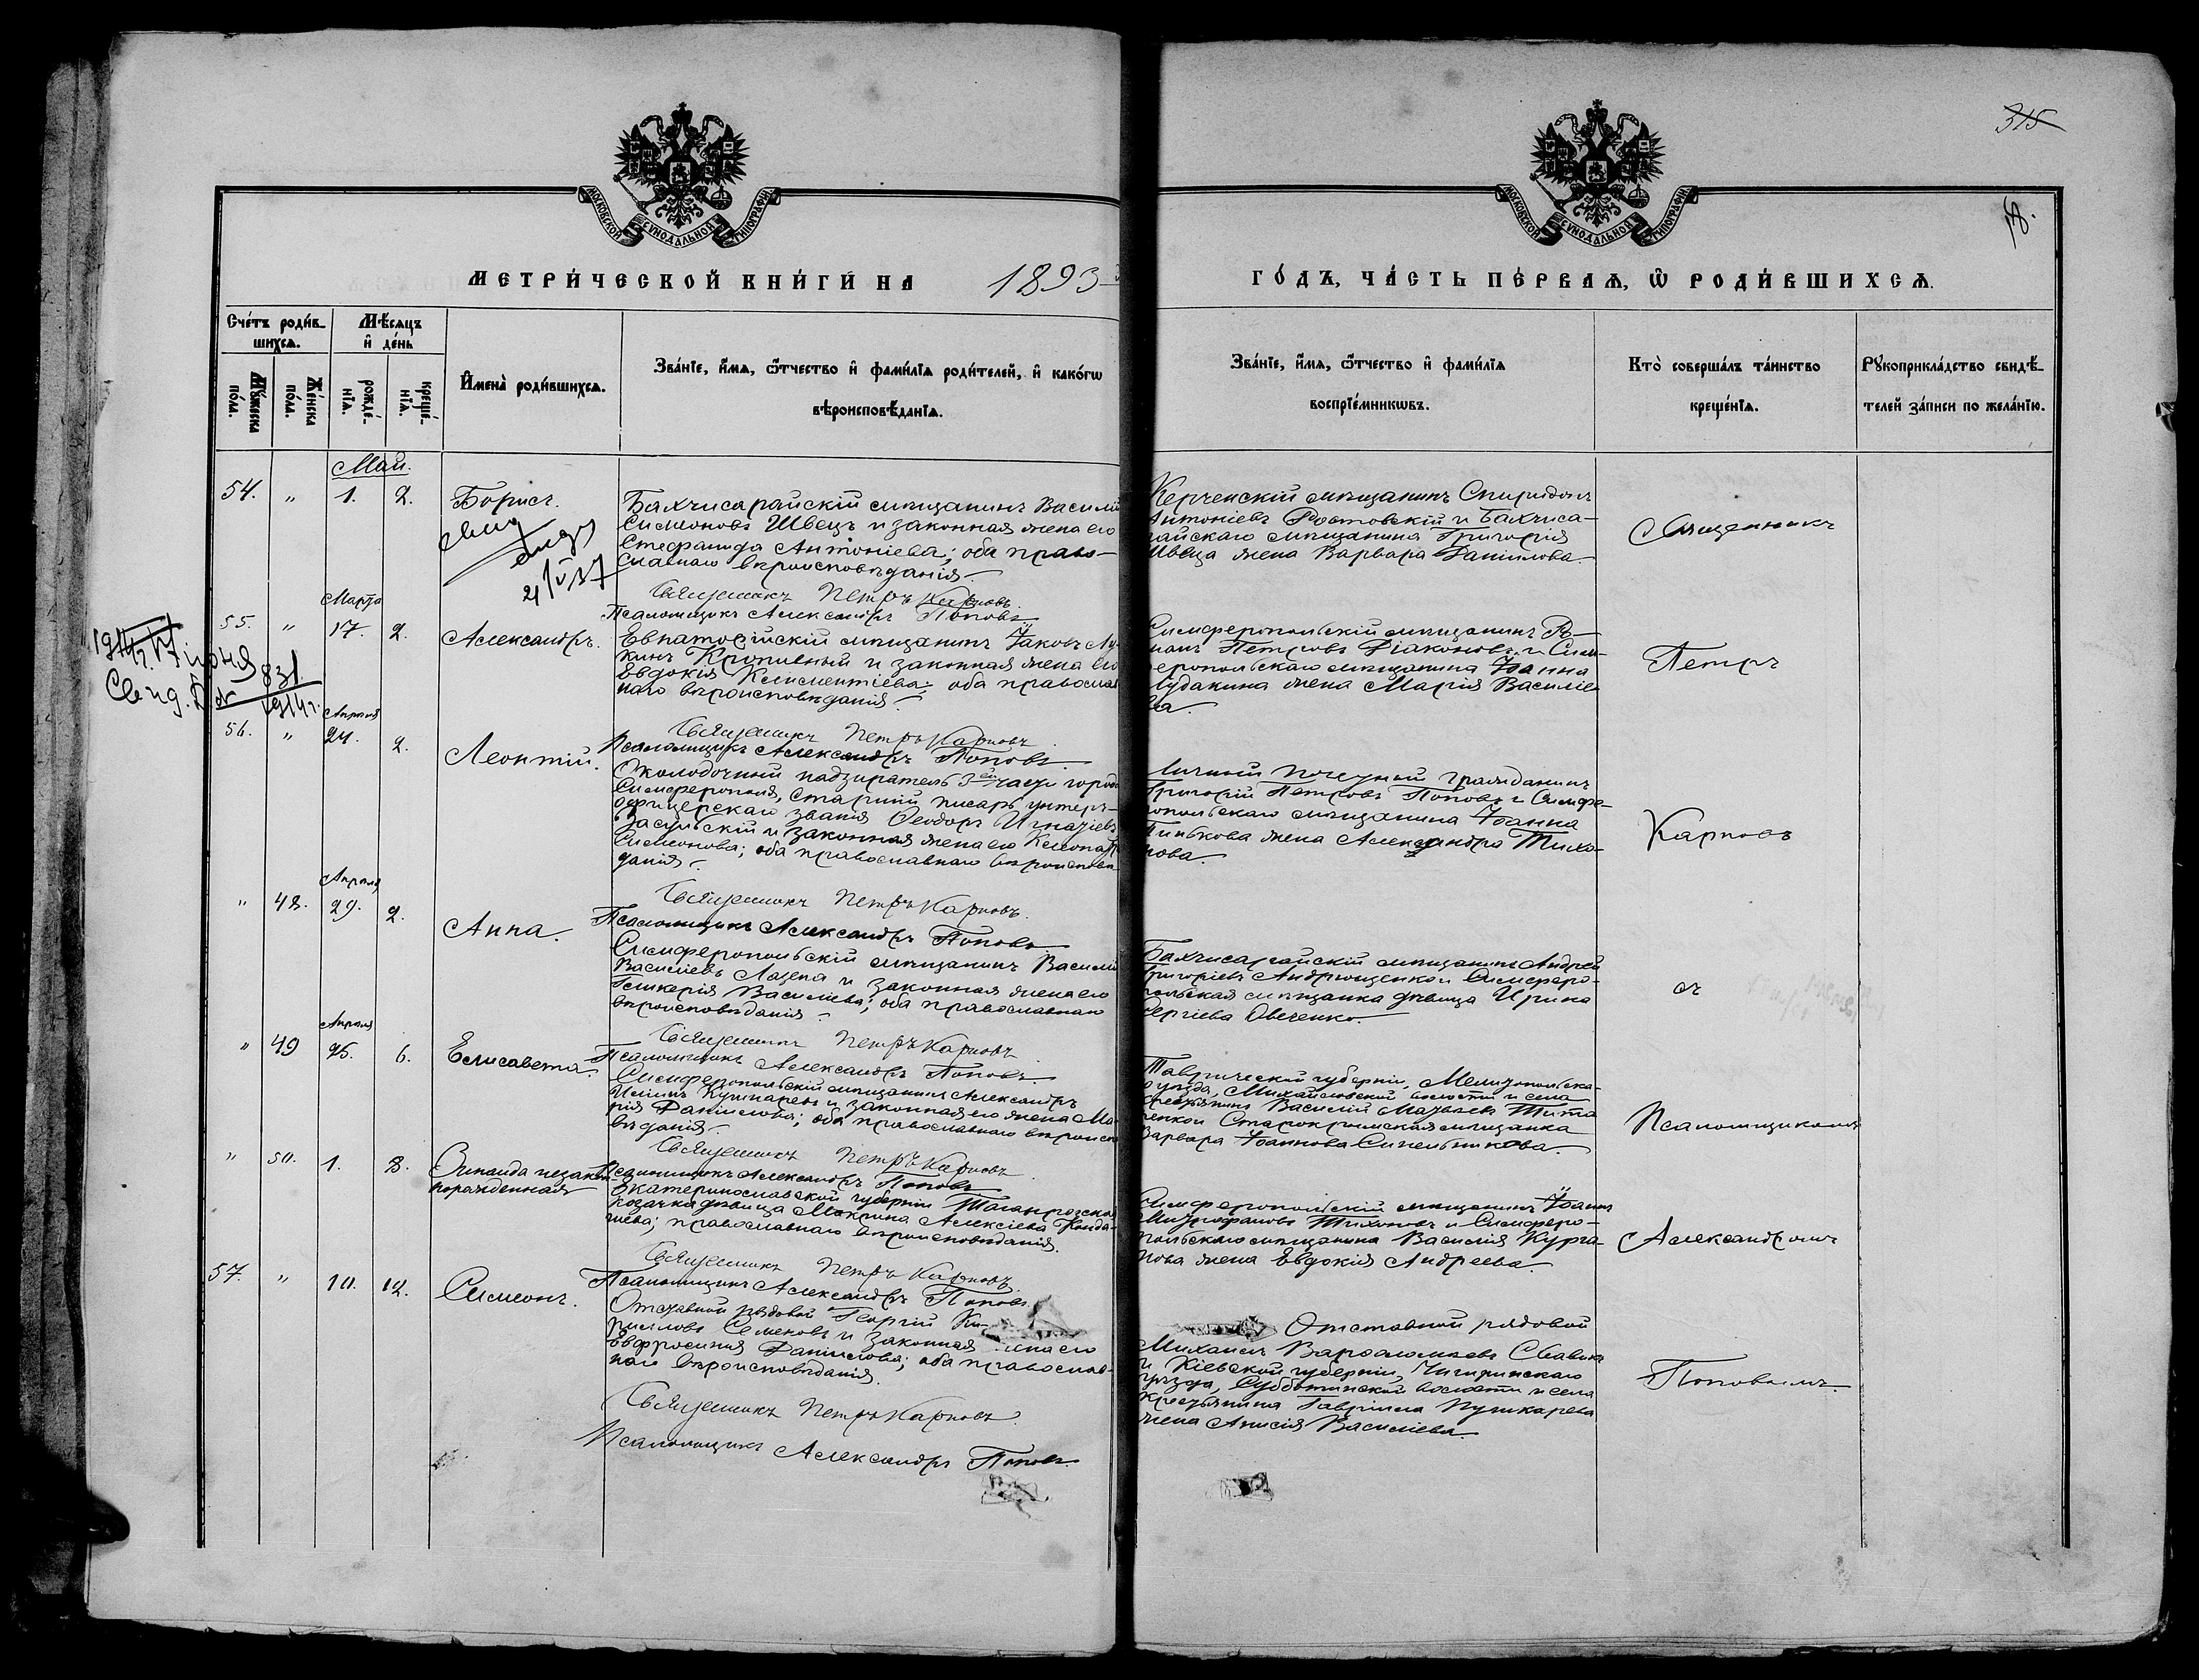 315
18.
МОСКОВСКОЙ СѴНОДАЛЬНОЙ ТИПОГРАФІИ
МОСКОВСКОЙ СѴНОДАЛЬНОЙ ТИПОГРАФІИ
МЕТРИ́ЧЕСКОЙ КНИ́ГИ НА 1893
ГО́ДЪ, ЧА́СТЬ ПЕ́РВАѦ, Ѡ҆ РОДИ́ВШИХСѦ.
Сче́тъ роди́в-
шихсѧ.
Мѣ́сѧцъ
и҆ де́нь
Мꙋ́жеска
по́ла.
Же́нска
по́ла.
рожде́-
нїѧ.
креще́-
нїѧ.
И҆мена̀ роди́вшихсѧ.
Зва́нїе, и҆́мѧ, ѻ҆́тчество и҆ фами́лїѧ роди́телей, и҆ како́гѡ
вѣроисповѣ́данїѧ.
Зва́нїе, и҆́мѧ, ѻ҆́тчество и҆ фами́лїѧ
воспрїе́мникѡвъ.
Кто̀ соверша́лъ та́инство
креще́нїѧ.
Рꙋкоприкла́дство свидѣ́-
телей за́писи по жела́нїю.
Май.
54. " 1. 2. Борисъ.
Бахчисарайскій мѣщанинъ Василій
Симеоновъ Швецъ и законная жена его
Стефанида Антоніева; оба право-
славнаго вѣроисповѣданія.
Священникъ Петръ Карповъ.
Псаломщикъ Александръ Поповъ.
Керченскій мѣщанинъ Спиридонъ
Антоніевъ Ростовскій и Бахчиса-
райскаго мѣщанина Григорія
Швеца жена Варвара Даніилова.
Священникъ
Марта
55. " 17. 2. Александръ.
Свид.
831
1914 г.
Евпаторійскій мѣщанинъ Іаковъ Лу-
кинъ Кропивный и законная жена его
Евдокія Климентіева; оба православ-
наго вѣроисповѣданія.
Священникъ Петръ Карповъ.
Псаломщикъ Александръ Поповъ.
Симферопольскій мѣщанинъ Ро-
манъ Петровъ Діаконовъ и Сим-
феропольскаго мѣщанина Іоанна
жена Марія Василіе-
ва.
Петръ
Апрѣля
56. " 24. 2. Леонтій.
Околодочный надзиратель 3ей части города
Симферополя, старшій писарь унтеръ-
офицерскаго званія Ѳеодоръ Игнатіевъ
Засульскій и законная жена его
Симеонова; оба православнаго вѣроисповѣ-
данія.
Священникъ Петръ Карповъ.
Псаломщикъ Александръ Поповъ.
Личный почетный гражданинъ
Григорій Петровъ Поповъ и Симфе-
ропольскаго мѣщанина Іоанна
жена Александра Тихо-
нова.
Карповъ
Апрѣля
" 48. 29. 2. Анна.
Симферопольскій мѣщанинъ Василій
Василіевъ Лацепа и законная жена его
Гликерія Василіева; оба православнаго
вѣроисповѣданія.
Священникъ Петръ Карповъ.
Псаломщикъ Александръ Поповъ.
Бахчисарайскій мѣщанинъ Андрей
Григоріевъ Андрющенко и Симферо-
польская мѣщанка дѣвица Ирина
Сергіева Овченко.
съ
Апрѣля
" 49 25. 6. Елисавета.
Симферопольскій мѣщанинъ Александръ
Иліинъ Пушкаревъ и законная его жена Ма-
рія Даніилова; оба православнаго вѣроиспо-
вѣданія.
Священникъ Петръ Карповъ
Псаломщикъ Александръ Поповъ
Таврической губерніи, Мелитопольска-
го уѣзда, Михайловской волости и села
крестьянинъ Василій Матвѣевъ Тита-
ренко и Старокрымская мѣщанка
Варвара Іоаннова Синельникова.
Псаломщикомъ
" 50. 1. 8. Зинаида незакон-
норожденная
Екатеринославской губерніи Таганрогская
козачка дѣвица Макрина Алексіева
православнаго вѣроисповѣданія.
Священникъ Петръ Карповъ
Псаломщикъ Александръ Поповъ.
Симферопольскій мѣщанинъ Іоаннъ
Митрофановъ Тихоновъ и Симферо-
польскаго мѣщанина Василія Курга-
нова жена Евдокія Андреева.
Александромъ
57. " 10. 12. Симеонъ.
Отставной рядовой Георгій Ки-
рилловъ Семеновъ и законная жена его
Евфросинія Даніилова; оба православ-
наго вѣроисповѣданія.
Священникъ Петръ Карповъ.
Псаломщикъ Александръ Поповъ.
Отставной рядовой
Михаилъ Варѳоломеевъ
и Кіевской губерніи, Чигиринскаго
уѣзда, Субботинской волости и села
крестьянина Гавріила Пушкарева
жена Анисія Василіева.
Поповымъ.